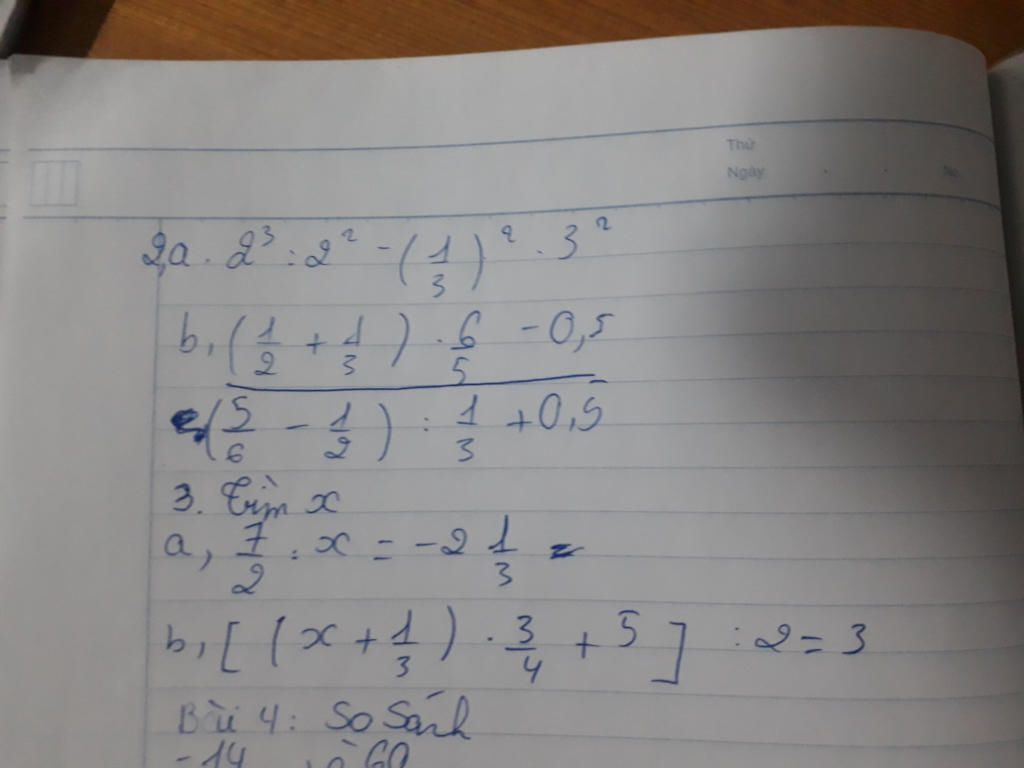 Thứ
Ngày
No.
2,a. 2³ : 2² - (1/3)² . 3²
b, (1/2 + 1/3) . 6/5 - 0,5
(5/6 - 1/2) : 1/3 + 0,5
3. Tìm x
a, 7/2 : x = -2 1/3 =
b, [(x + 1/3) . 3/4 + 5] : 2 = 3
Bài 4: So Sánh
-14 và 60